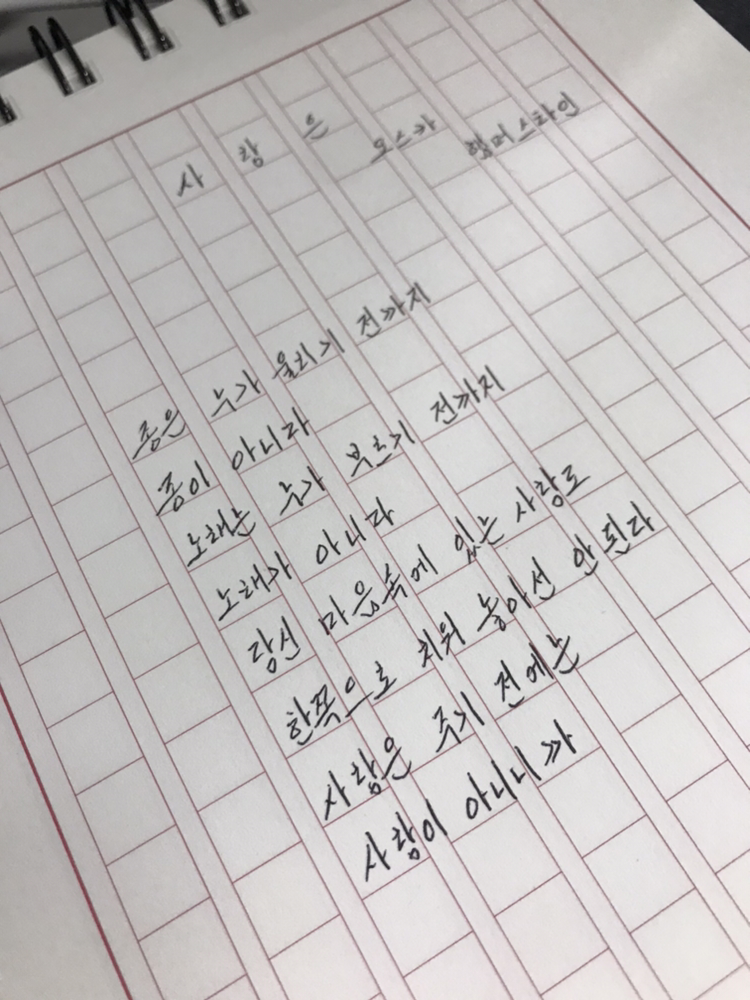 사랑은 오스카 햄머스타인
종은 누가 울리기 전까지
종이 아니다
노래는 누가 부르기 전까지
노래가 아니다
당신 마음속에 있는 사랑도
한쪽으로 치워 놓아선 안 된다
사랑은 주기 전에는
사랑이 아니니까